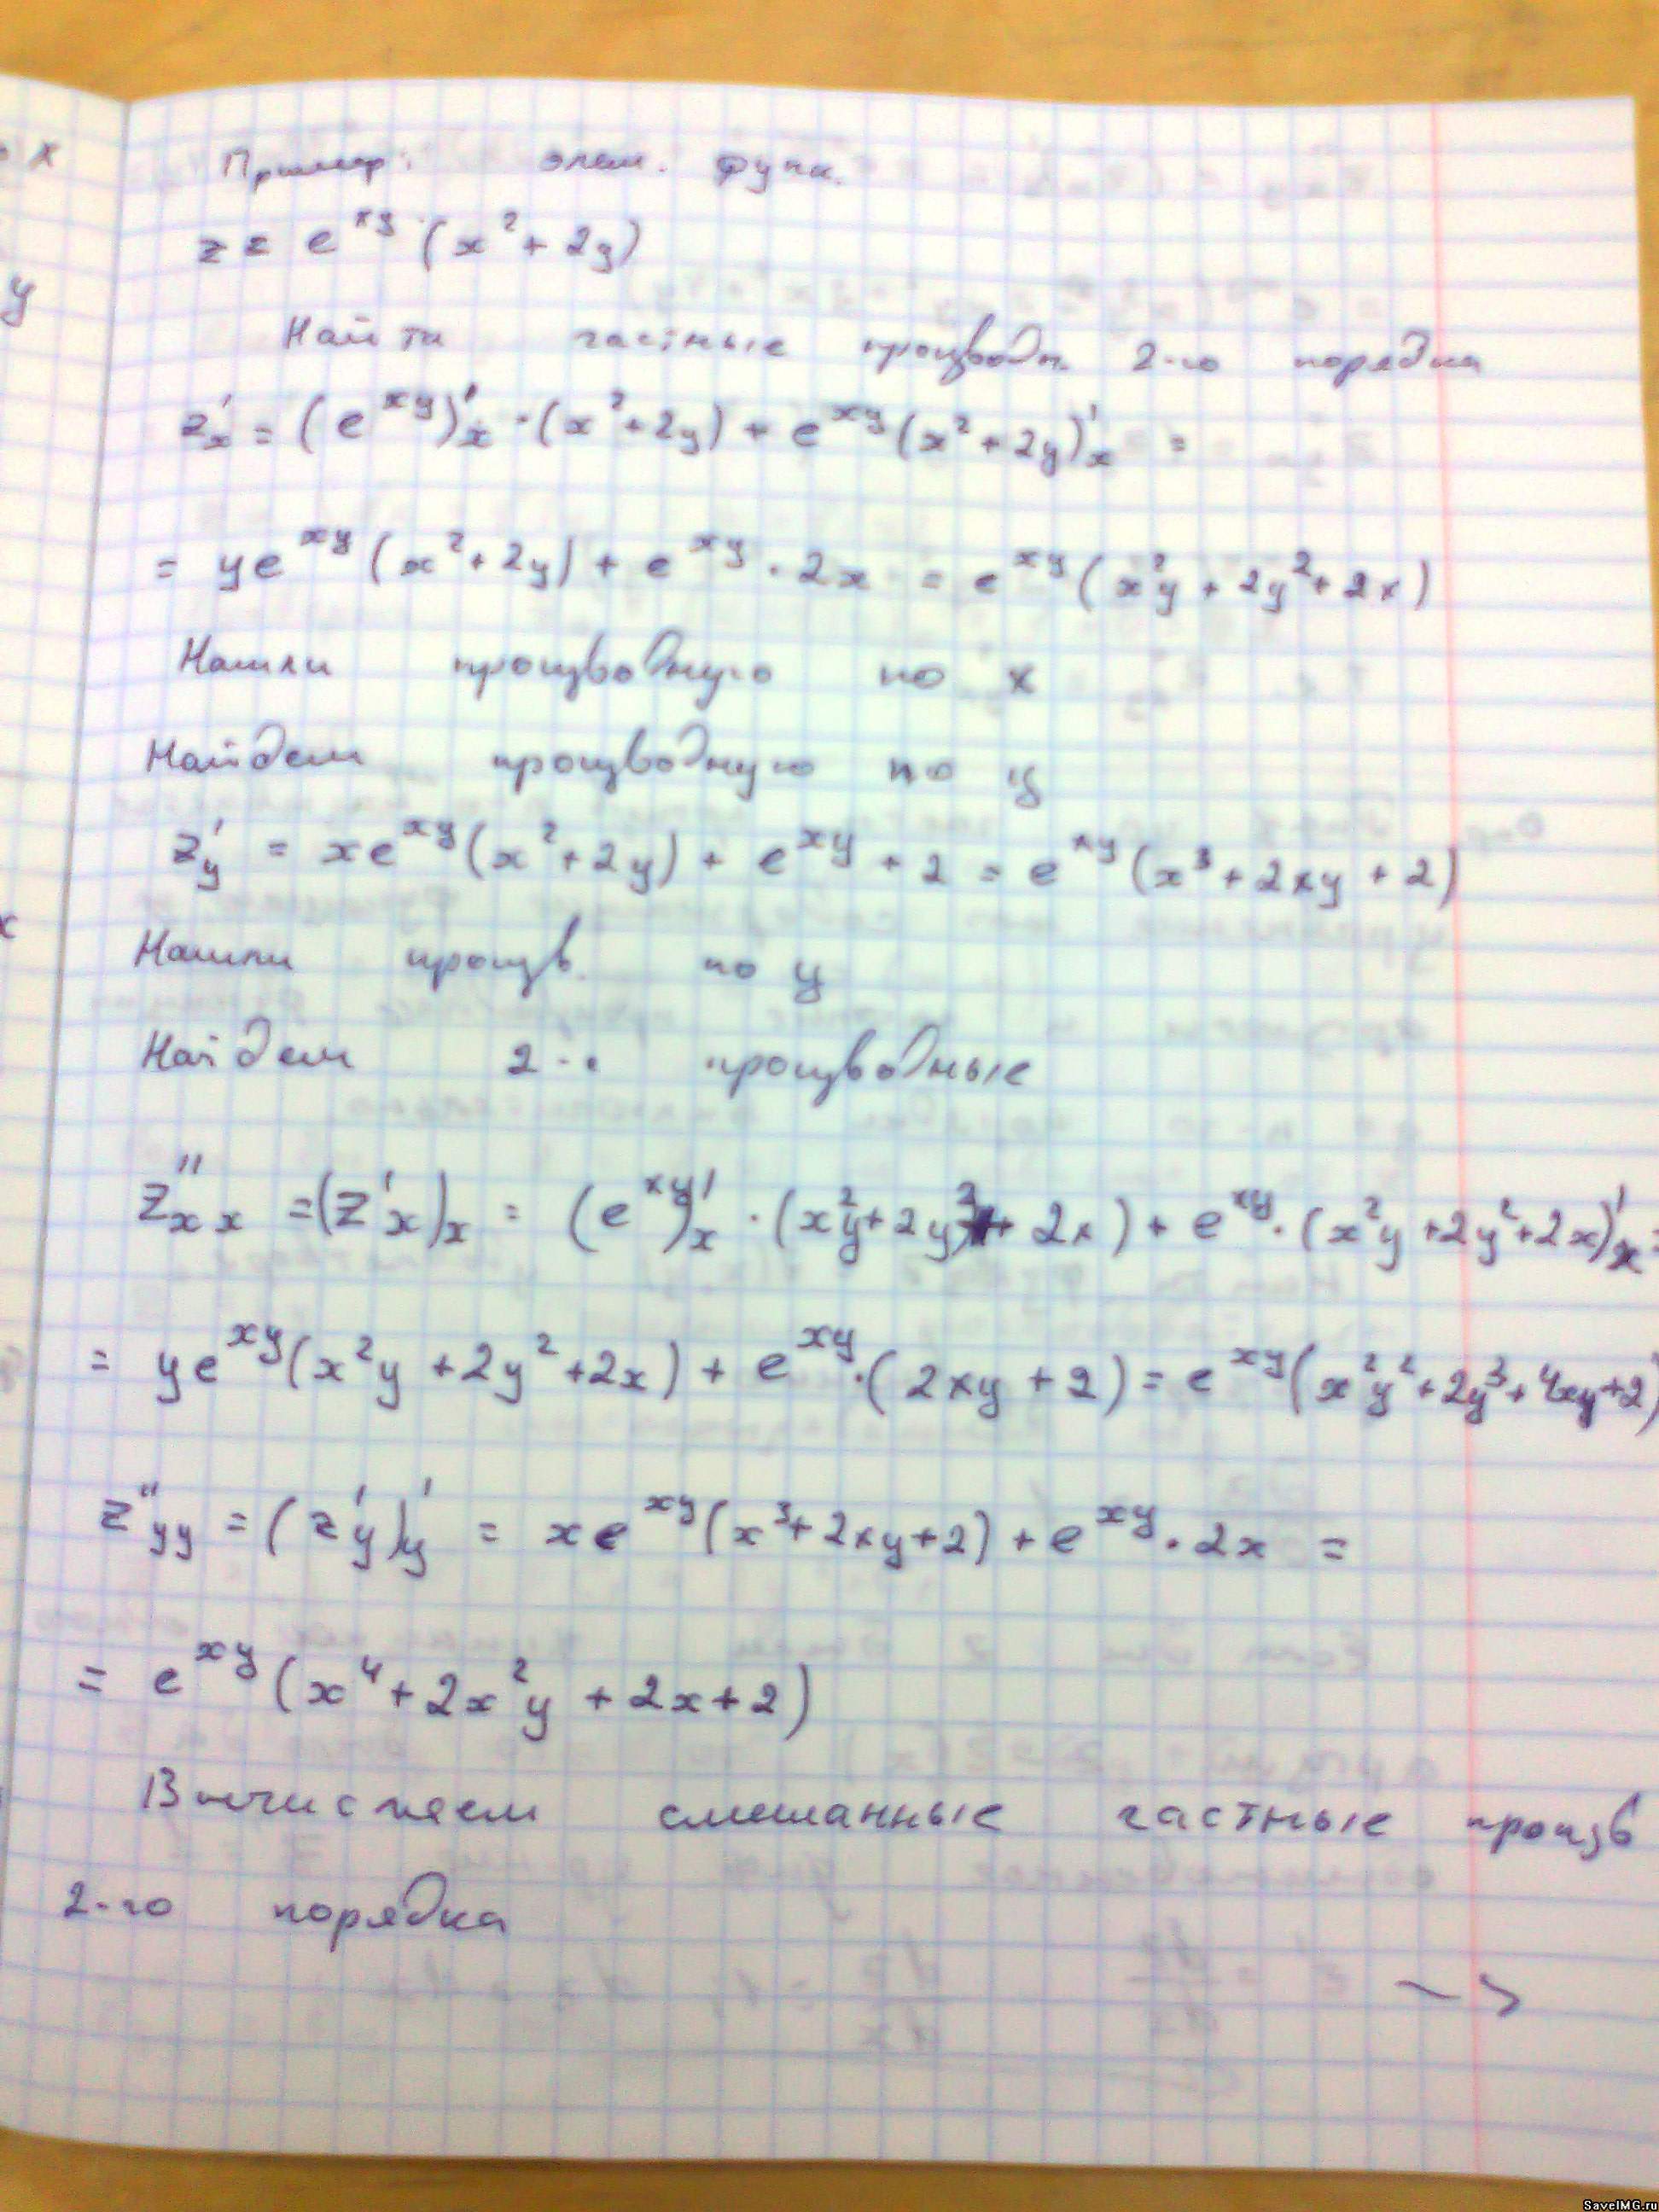 Пример: элем. функ.
z = e^{xy} (x² + 2y)
Найти частные производн. 2-го порядка
z'ₓ = (e^{xy})'ₓ · (x² + 2y) + e^{xy} (x² + 2y)'ₓ =
= ye^{xy} (x² + 2y) + e^{xy} · 2x = e^{xy} (x²y + 2y² + 2x)
Нашли производную по x
Найдем производную по y
z'_y = xe^{xy} (x² + 2y) + e^{xy} + 2 = e^{xy} (x³ + 2xy + 2)
Нашли произв. по y
Найдем 2-е производные
z''ₓₓ = (z'ₓ)ₓ = (e^{xy})'ₓ · (x²y + 2y² + 2x) + e^{xy} · (x²y + 2y² + 2x)'ₓ =
= ye^{xy} (x²y + 2y² + 2x) + e^{xy} · (2xy + 2) = e^{xy} (x²y² + 2y³ + 4xy + 2)
z''_{yy} = (z'_y)'_y = xe^{xy} (x³ + 2xy + 2) + e^{xy} · 2x =
= e^{xy} (x⁴ + 2x²y + 2x + 2)
Вычисляем смешанные частные произв
2-го порядка
→
x
y
x
SaveIMG.ru